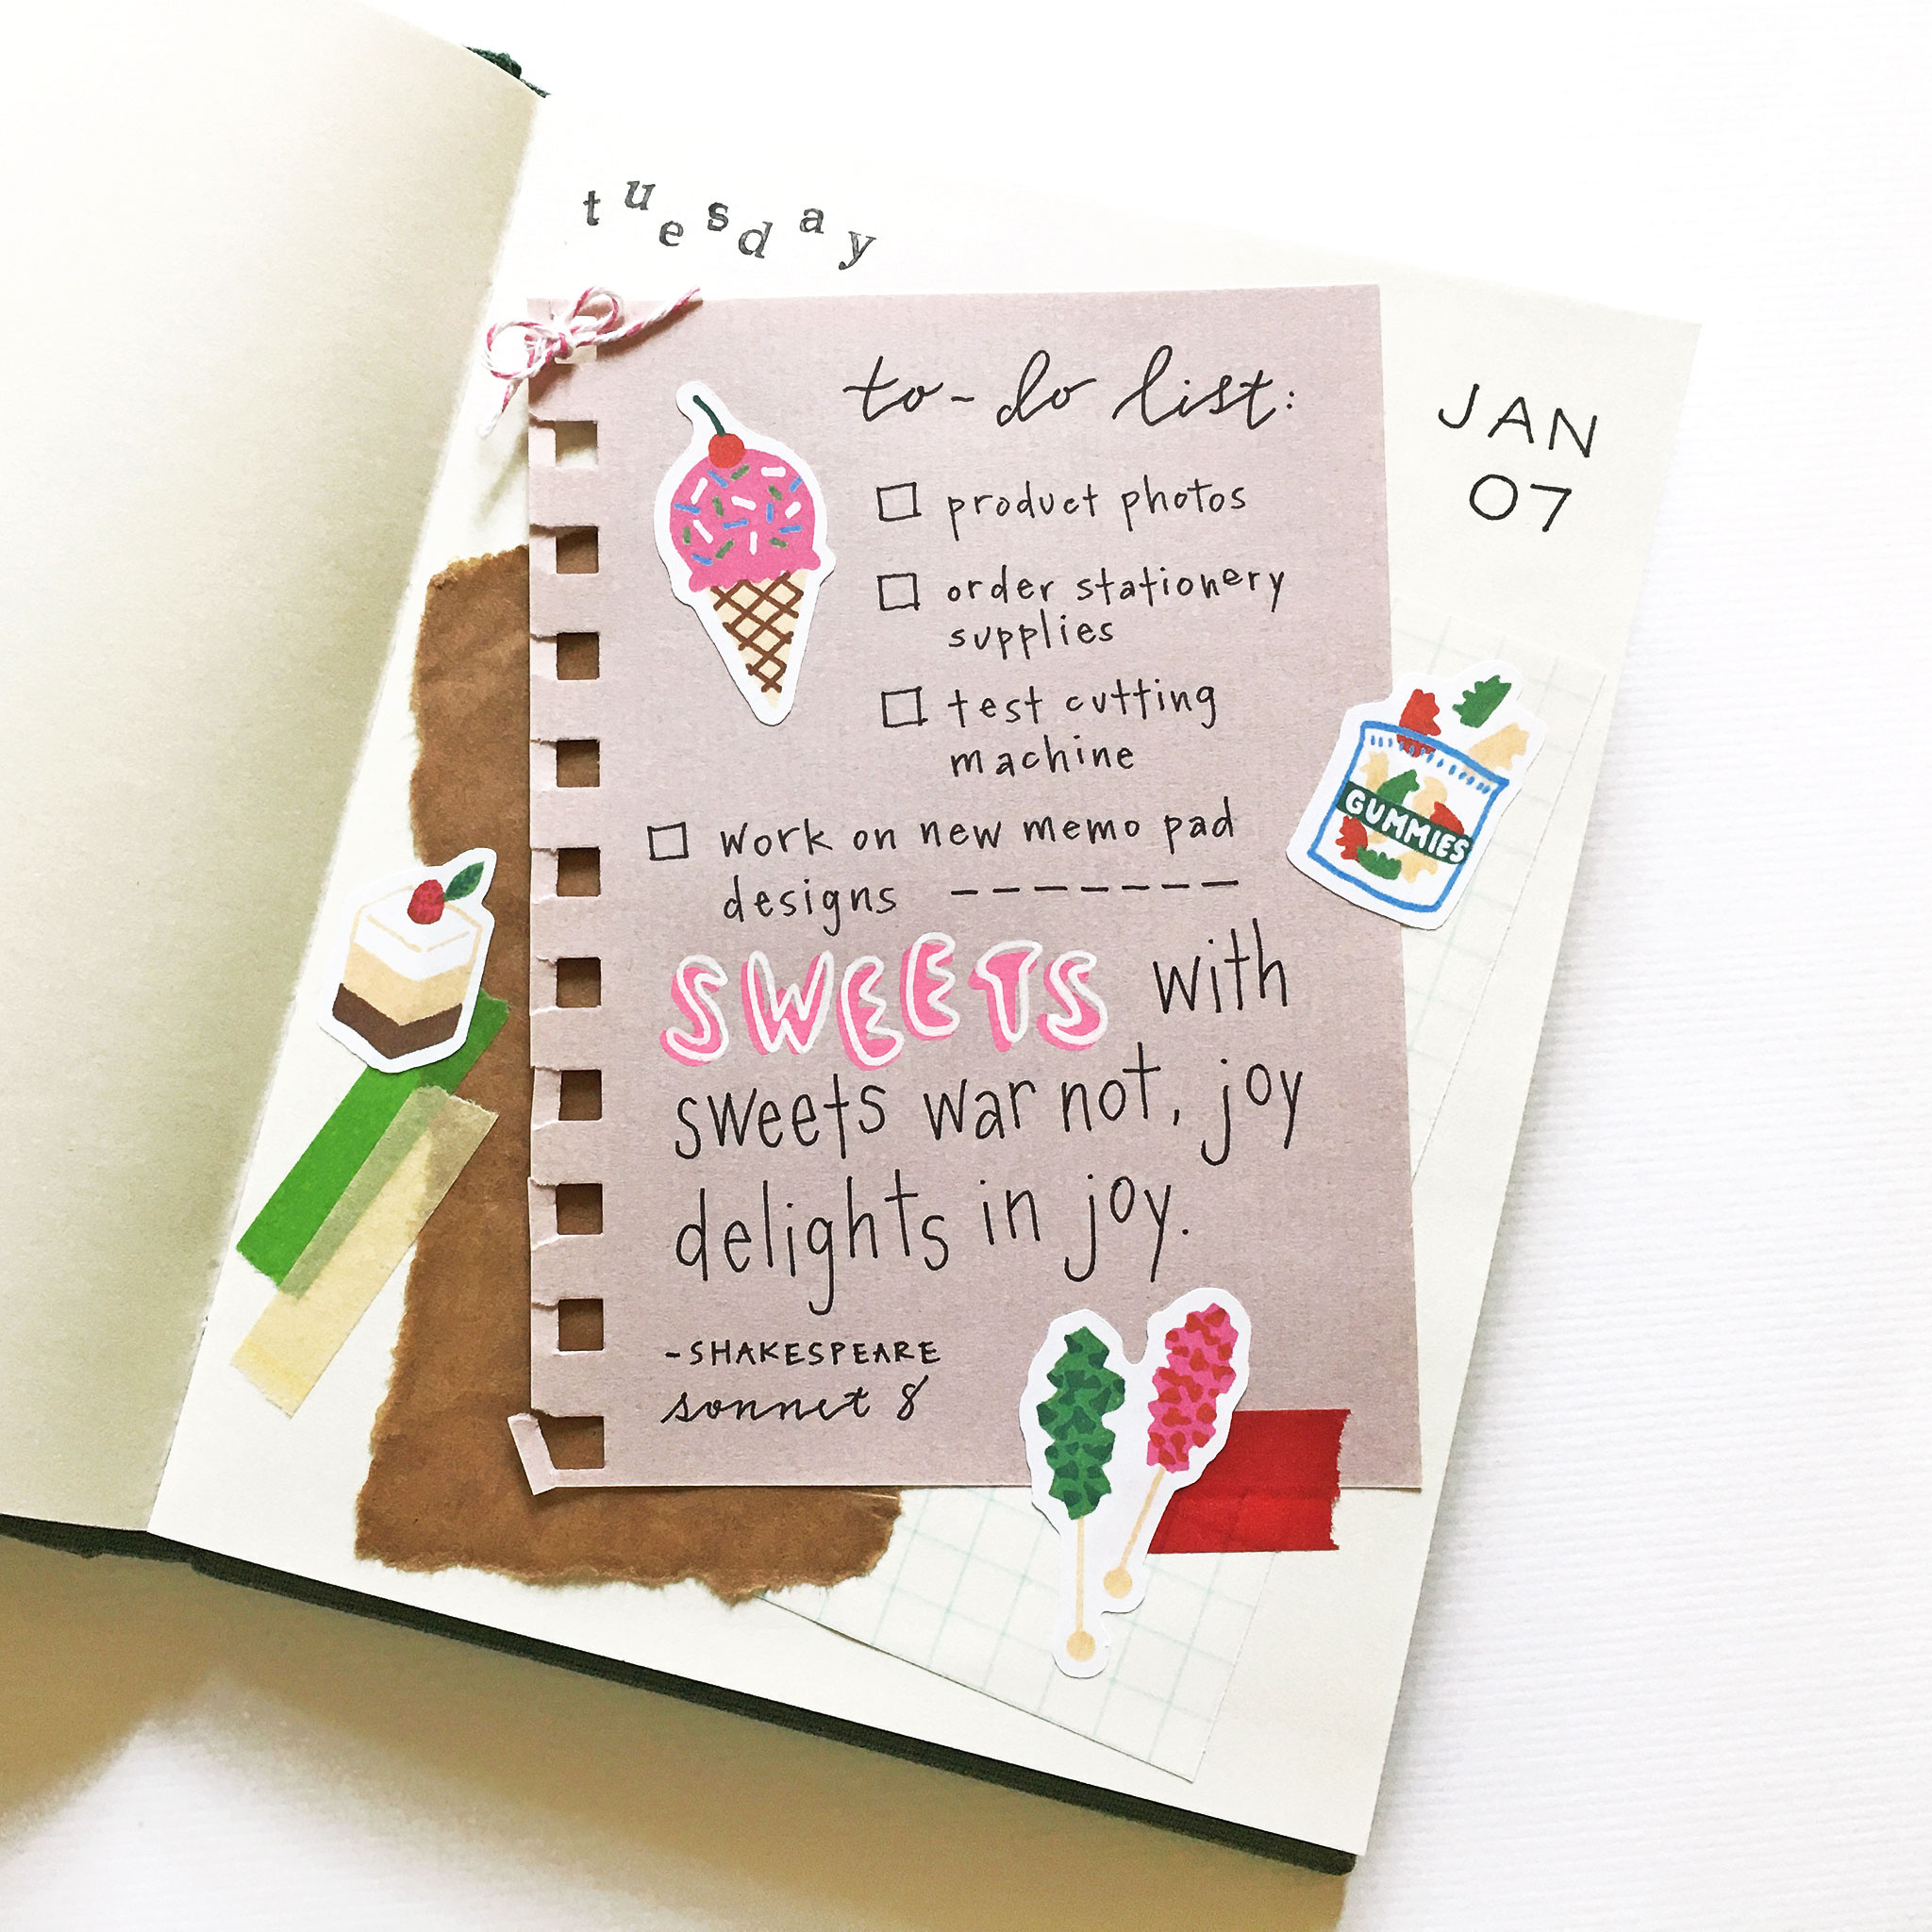 tuesday
JAN
07
to-do list:
product photos
order stationery
supplies
test cutting
machine
work on new memo pad
designs -------
SWEETS with
sweets war not, joy
delights in joy.
-SHAKESPEARE
sonnet 8
GUMMIES